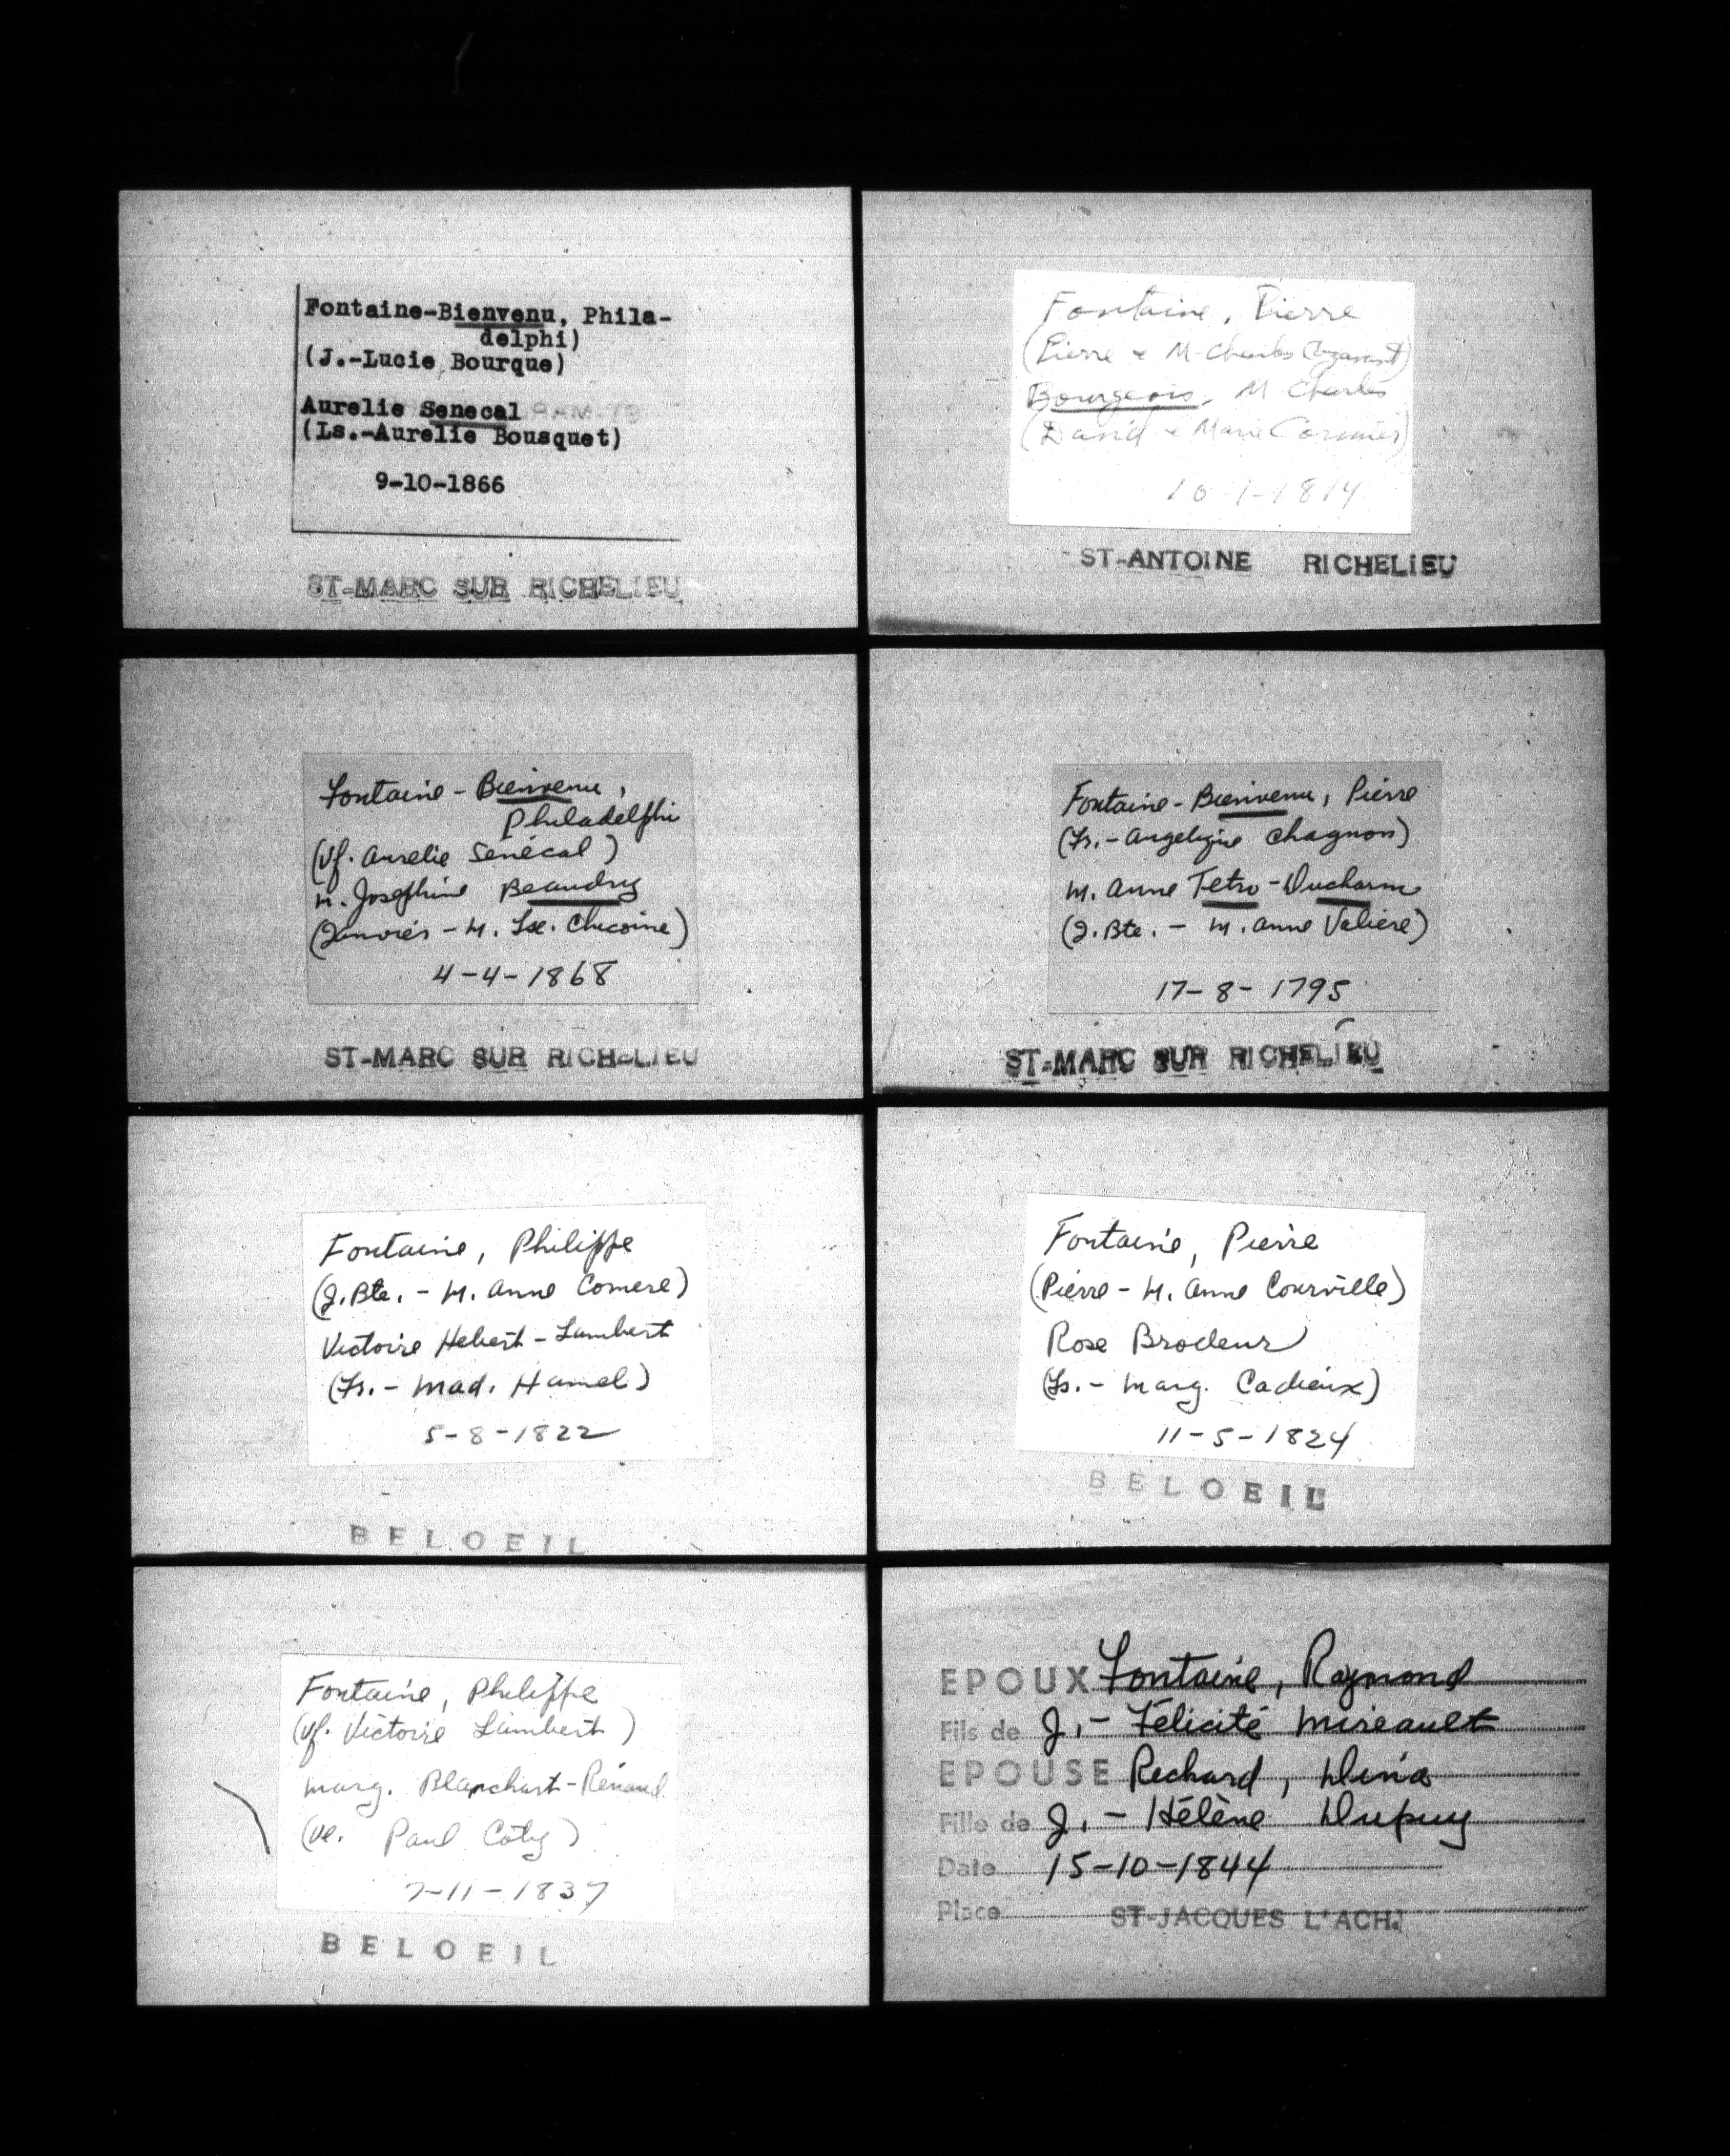 Fontaine-Bienvenu, Phila-
delphi)
(J.-Lucie Bourque)
Aurelie Senecal
(Ls.-Aurelie Bousquet)
9-10-1866
ST-MARC SUR RICHELIEU
Fontaine, Pierre
(Pierre & M-Charles
Bourgeois, M Charles
(David & Marie Cormier)
10-1-1814
ST-ANTOINE RICHELIEU
Fontaine-Bienvenu,
Philadelphi
(Vf. Aurelie Senécal)
M. Josephine Beaudry
(Janvier - M. Lse. Chicoine)
4-4-1868
ST-MARC SUR RICHELIEU
Fontaine-Bienvenu, Pierre
(Fr.- Angelique Chagnon)
M. Anne Tetro-Ducharm
(J. Bte. - M. Anne Valiere)
17-8-1795
ST-MARC SUR RICHELIEU
Fontaine, Philippe
(J. Bte. - M. Anne Comere)
Victoire Hebert-Lambert
(Fr. - Mad. Hamel)
5-8-1822
BELOEIL
Fontaine, Pierre
(Pierre - M. Anne Courville)
Rose Brodeur
(Ls. - Marg. Cadieux)
11-5-1824
BELOEIL
Fontaine, Philippe
(Vf. Victoire Lambert)
Marg. Blanchart-Renaud
(ve. Paul Coty)
7-11-1837
BELOEIL
EPOUX Fontaine, Raymond
Fils de J. - Félicité Mireault
EPOUSE Richard, Dina
Fille de J. - Hélène Dupuy
Date 15-10-1844
Place ST-JACQUES L'ACH.